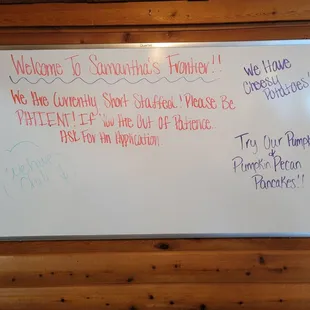 Welcome To Samantha's Frontier!!
We Are Currently Short Staffed! Please Be
PATIENT! If You Are Out Of Patience
Ask For An Application
We Have
Cheesy
Potatoes!
Try Our
&
Pumpkin Pecan
Pancakes!!